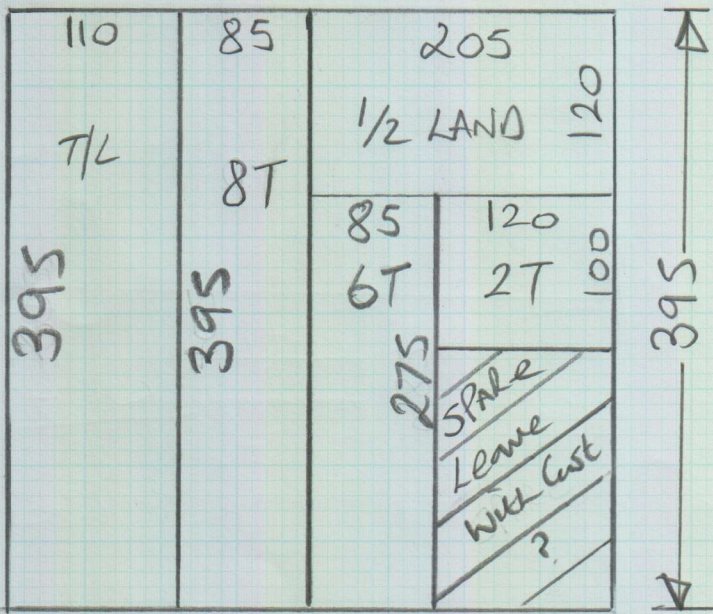 110
T/L
395
85
8T
395
205
1/2 LAND
120
85
6T
275
120
2T
100
SPARE
Leave
With Cust
?
395